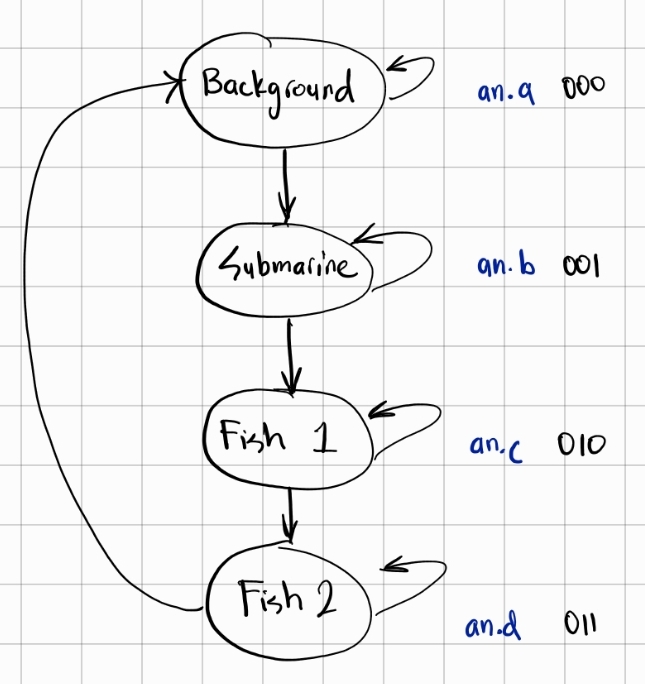 Background an.a 000
Submarine an.b 001
Fish 1 an.c 010
Fish 2 an.d 011